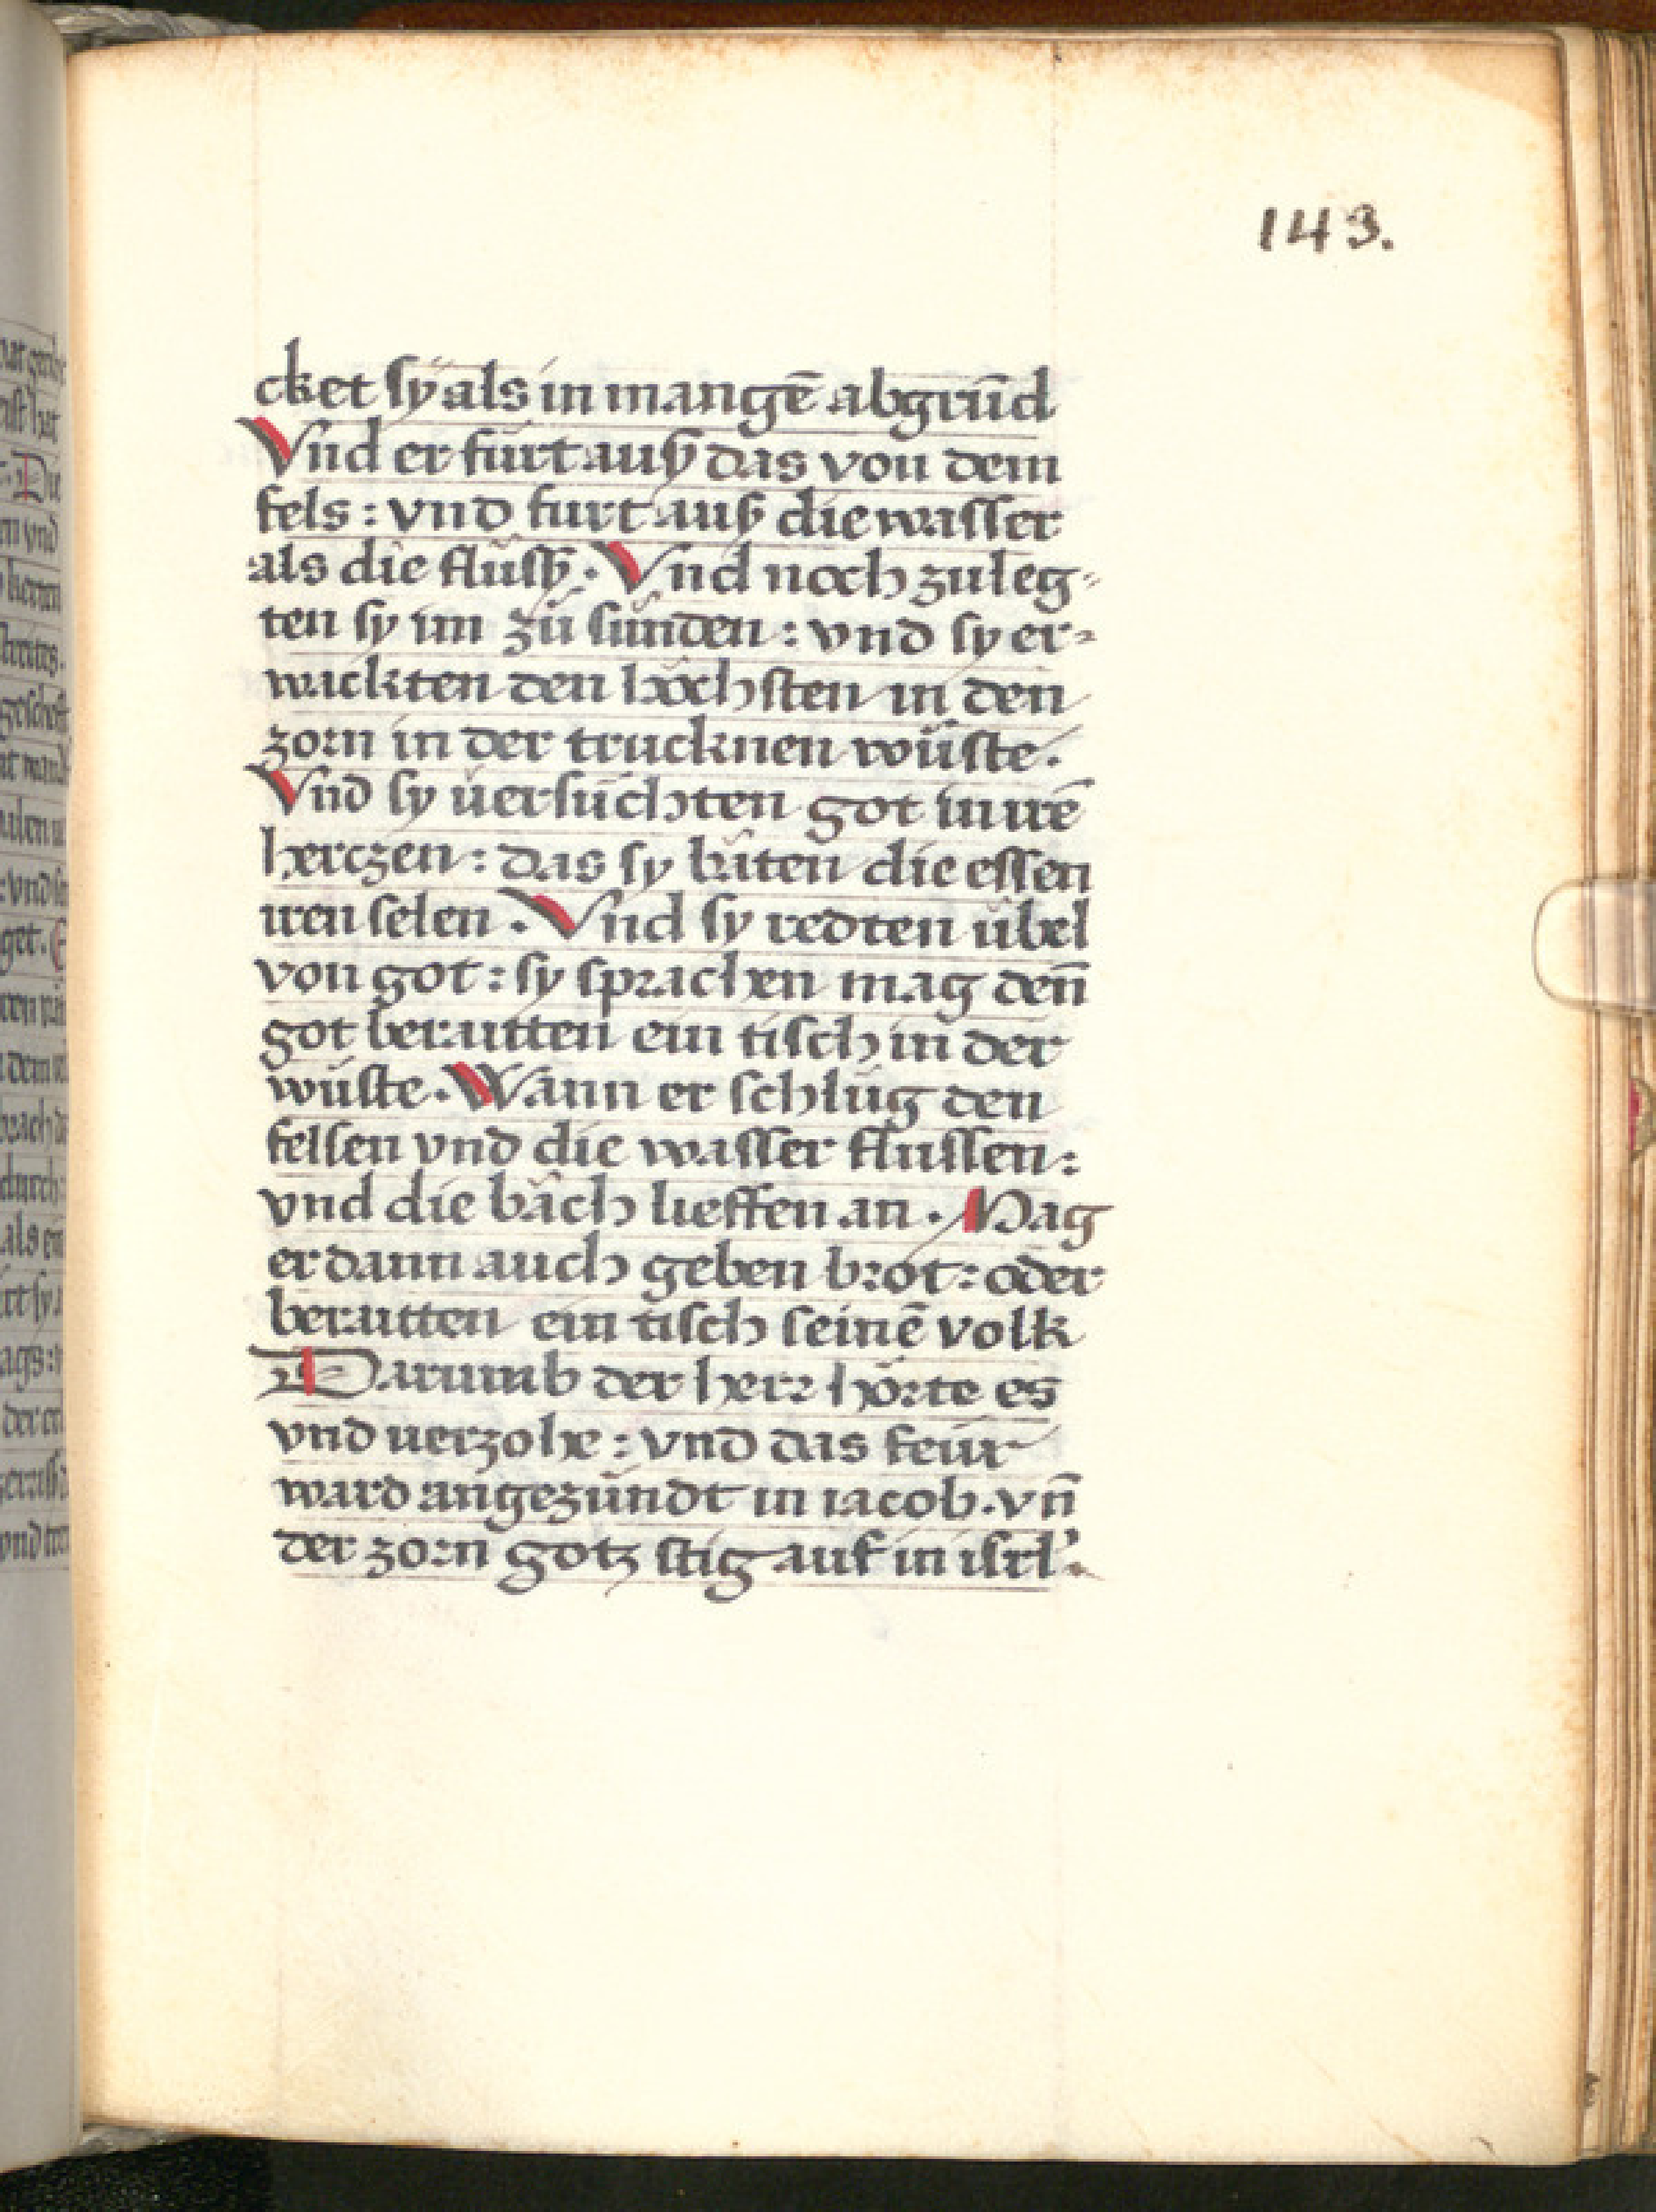 143.
cket sy als in mangē abgrūd
Vnd er fürt auß das von dem
fels : vnd furt auß die wasser
als die flüsß . Vnd noch zuleg-
ten sy im zů sünden : vnd sy er-
wackten den höchsten in den
zorn in der trucknen wüste .
Vnd sy uersůchten got in irē
herczen : das sy bäten die essen
iren selen . Vnd sy redten übel
von got : sy sprachen mag deñ
got beraitten ein tisch in der
wüste . Wann er schlůg den
felsen vnd die wasser flussen :
vnd die bäch lieffen an . Mag
er dann auch geben brot : oder
beraitten ein tisch seinē volk
Darumb der herr hörte es
vnd uerzohe : vnd das feür
ward angezündt in iacob . vñ
der zorn gotz stig auf in isrl' .